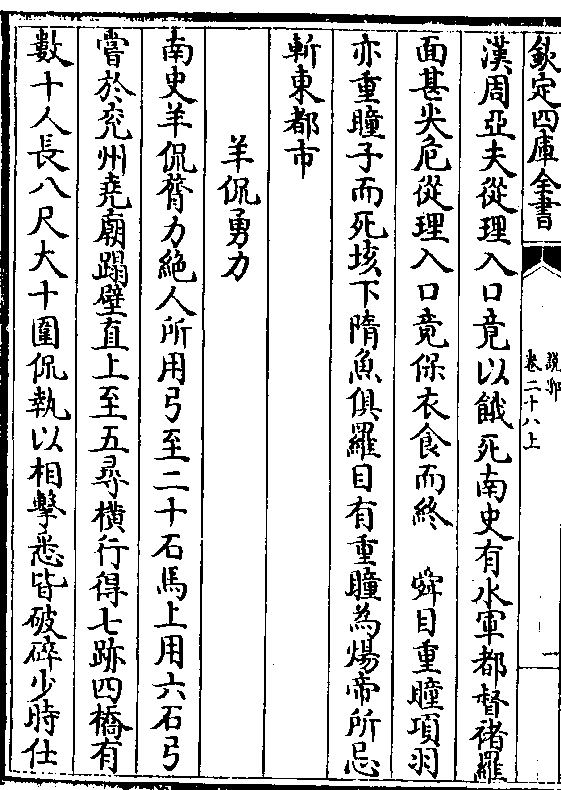 欽定四庫全書
說郛
卷二十八上
漢周亞夫從理入口竟以餓死南史有水軍都督褚羅
面甚尖危從理入口竟保衣食而終　舜目重瞳項羽
亦重瞳子而死垓下隋魚俱羅目有重瞳為煬帝所忌
斬東都市
羊侃勇力
南史羊侃膂力絶人所用弓至二十石馬上用六石弓
嘗於兖州堯廟蹋壁直上至五尋橫行得七跡四橋有
數十人長八尺大十圍侃執以相擊悉皆破碎少時仕